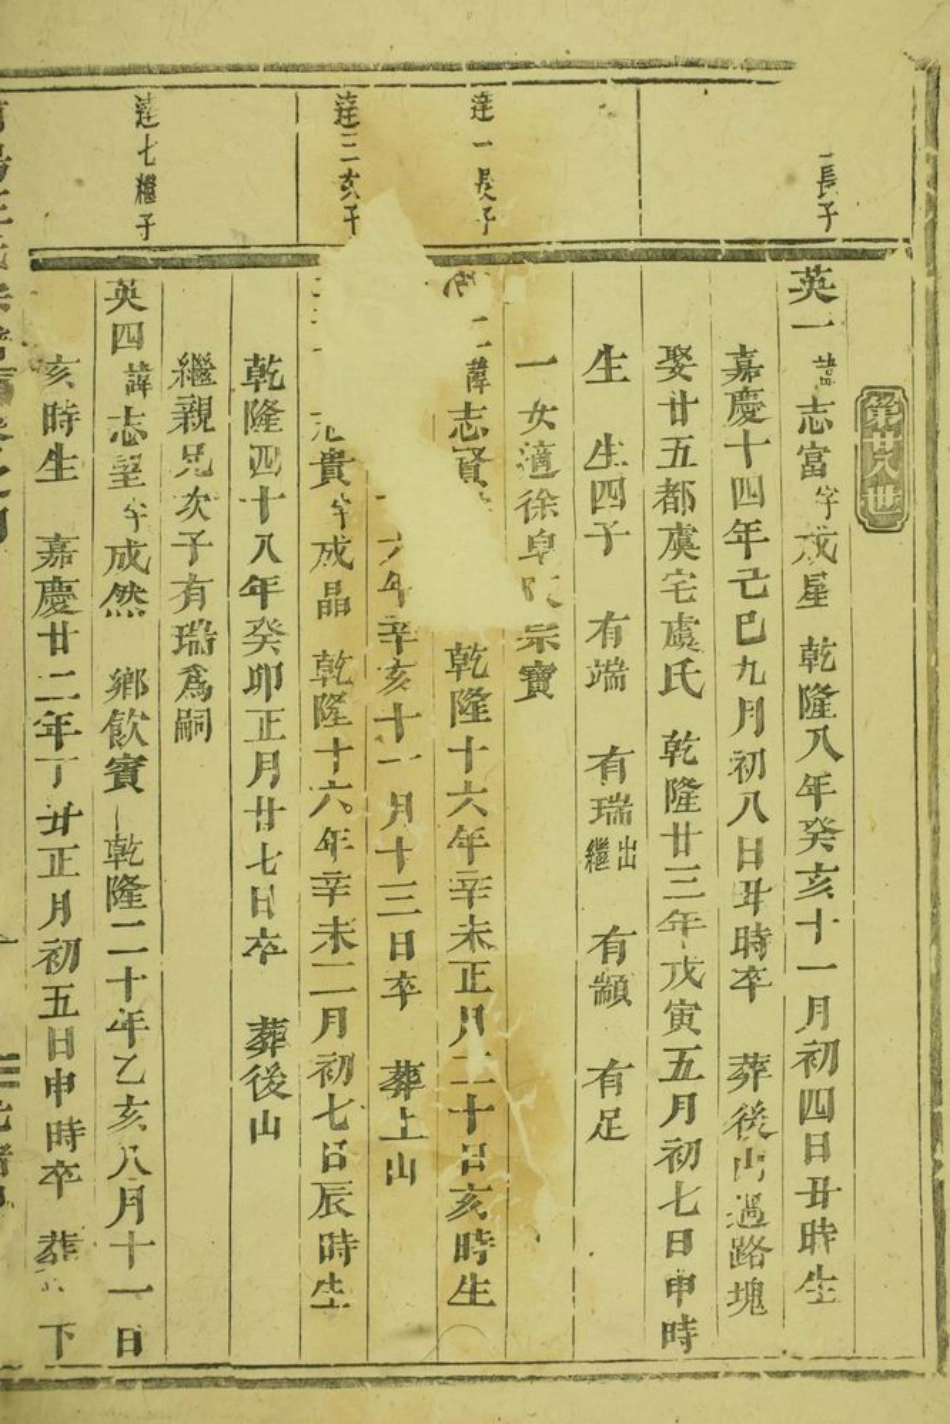 第廿八世
一長子
英一諱志富字成星 乾隆八年癸亥十一月初四日丑時生
嘉慶十四年己巳九月初八日丑時卒 葬後山過路塊
娶廿五都虞宅虞氏 乾隆廿三年戊寅五月初七日申時
生 生四子 有端 有瑞出繼 有顓 有足
一女適徐阜 宗寶
達一長子
二諱志賢 乾隆十六年辛未正月二十日亥時生
六年辛亥十一月十三日卒 葬上山
達三次子
志貴字成晶 乾隆十六年辛未二月初七日辰時生
乾隆四十八年癸卯正月廿七日卒 葬後山
繼親兄次子有瑞為嗣
達七繼子
英四諱志望字成然 鄉飲賓 乾隆二十年乙亥八月十一日
亥時生 嘉慶廿二年丁丑正月初五日申時卒 葬 下